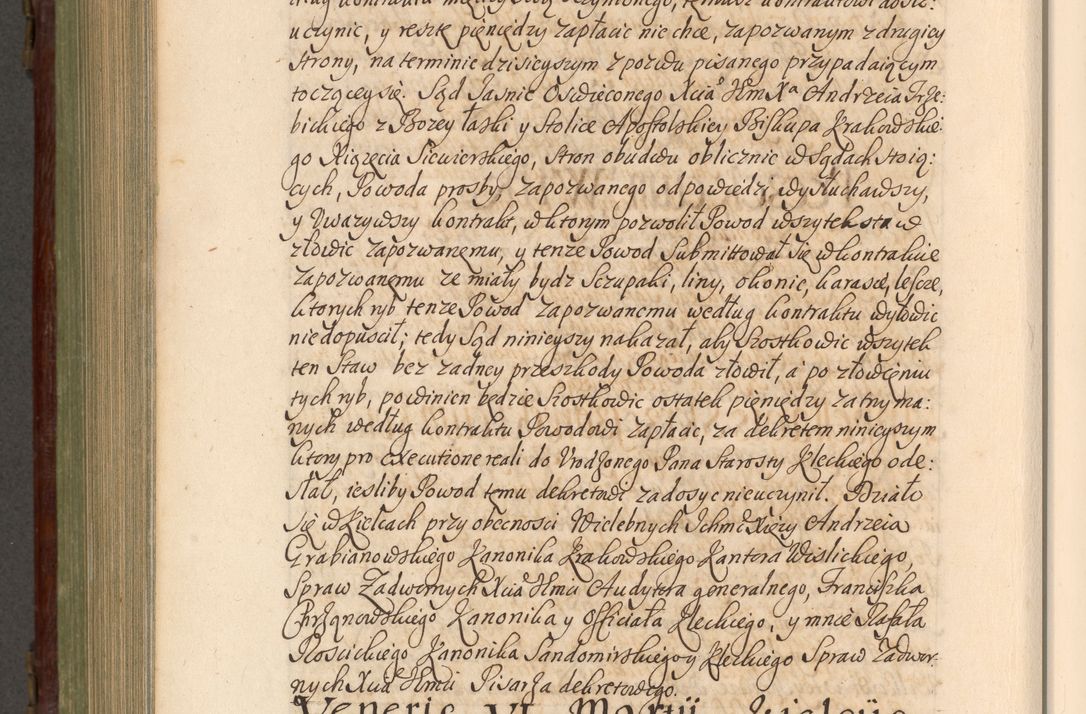 uczynic, y resztę pieniędzy zapłacic nie chce, zapozwanym z drugiey
strony, na terminie dzisieyszym z pozwu pisanego przypadaiącym
toczącey się. Sąd Jasnie Oswieconego Xcia Jmci Xa Andrzeia Trze:
bickiego z Bozey łaski y Stolice Apostolskiey Biskupa Krakowskie:
go Xiązęcia Siewierskiego, stron obudwu oblicznie w Sądach stoią:
cych, Powoda prosby, zapozwanego odpowiedzi, wysłuchawszy,
y Uwazywszy kontrakt, w ktorym pozwolił Powod wszytek staw
złowic zapozwanemu, y tenze Powod Submittował się w kontrakcie
zapozwanemu ze miały bydz Sczupaki, liny, okonie, karasie, lescze,
ktorych ryb tenze Powod zapozwanemu według kontraktu wyłowic
niedopuscił; tedy Sąd ninieyszy nakazał, aby Szostkowic wszytek
ten Staw bez zadney przeszkody Powoda złowił, a po złowieniu
tych ryb, powinien będzie Szostkowic ostatek pieniędzy zatrzyma:
nych według kontraktu Powodowi zapłacic, za dekretem ninieyszym
ktory pro executione reali do Urodzonego Pana Starosty Kieckiego ode:
słał, iesliby Powod temu dekretowi zadosyc nieuczynił. Działo
się w Kielcach przy obecnosci Wielebnych Ichmc Xięzy Andrzeia
Grabianowskiego Kanonika Krakowskiego Kantora Wislickiego,
Spraw Zadwornych Xcia Jmci Audytora generalnego, Franciszka
Chrząnowskiego Kanonika y Officiała Kieckiego, y mnie Rafała
Roscickiego Kanonika Sandomirskiego y Kieckiego Spraw Zadwor:
nych Xcia Jmci Pisarza dekretowego.
Veneris VI Martij Kielcijs